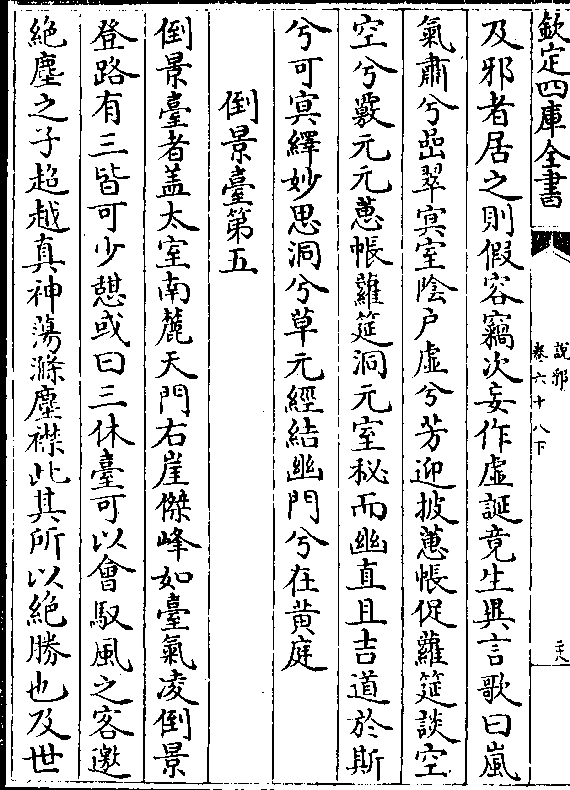 欽定四庫全書
說郛
卷六十八下
及邪者居之則假容竊次妄作虛誕竟生異言歌曰嵐
氣肅兮岊翠㝠室陰户虛兮芳迎披蕙帳促蘿筵談空
空兮覈元元蕙帳蘿筵洞元室秘而幽直且吉道於斯
兮可㝠繹妙思洞兮草元經結幽門兮在黄庭
倒景臺第五
倒景臺者盖太室南麓天門右崖傑峰如臺氣凌倒景
登路有三皆可少憇或曰三休臺可以會馭風之客邀
絶塵之子超越真神蕩滌塵襟此其所以絶勝也及世